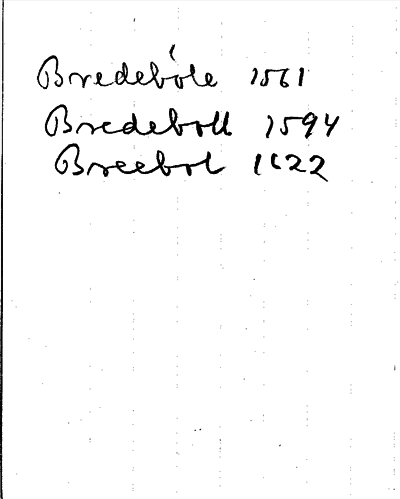 Bredebóle 1561
Bredeboll 1594
Breebol 1622